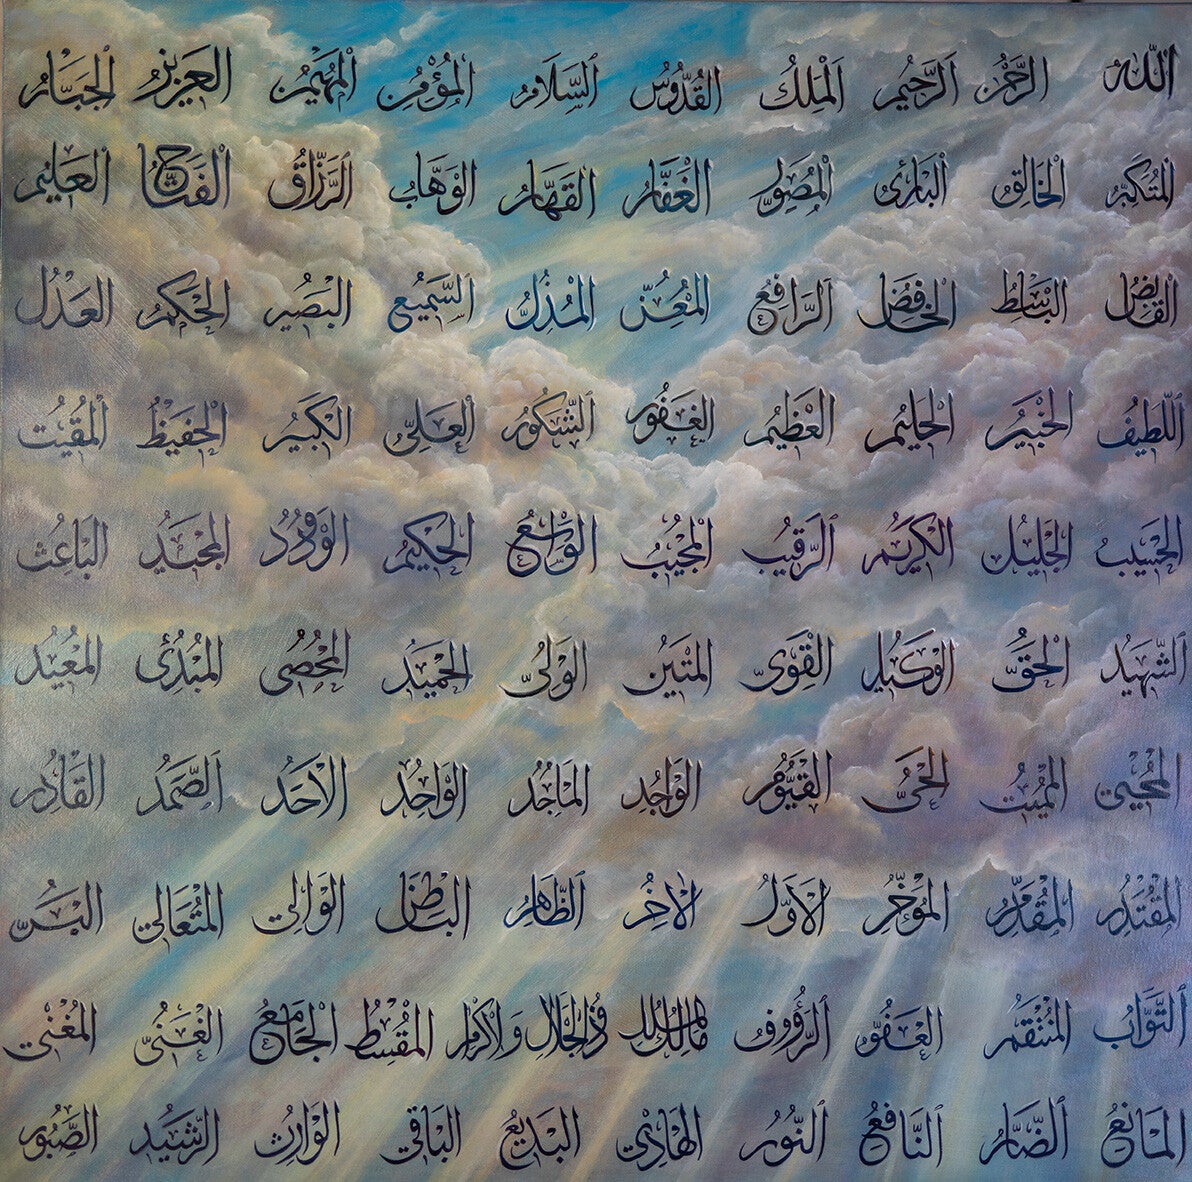 الله الرحمن الرحيم الملك القدوس السلام المؤمن المهيمن العزيز الجبار
المتكبر الخالق البارئ المصور الغفار القهار الوهاب الرزاق الفتاح العليم
القابض الباسط الخافض الرافع المعز المذل السميع البصير الحكم العدل
اللطيف الخبير الحليم العظيم الغفور الشكور العلي الكبير الحفيظ المقيت
الحسيب الجليل الكريم الرقيب المجيب الواسع الحكيم الودود المجيد الباعث
الشهيد الحق الوكيل القوي المتين الولي الحميد المحصي المبدئ المعيد
المحيي المميت الحي القيوم الواجد الماجد الواحد الأحد الصمد القادر
المقتدر المقدم المؤخر الأول الآخر الظاهر الباطن الوالي المتعالي البر
التواب المنتقم العفو الرؤوف مالك الملك ذو الجلال والإكرام المقسط الجامع الغني المغني
المانع الضار النافع النور الهادي البديع الباقي الوارث الرشيد الصبور